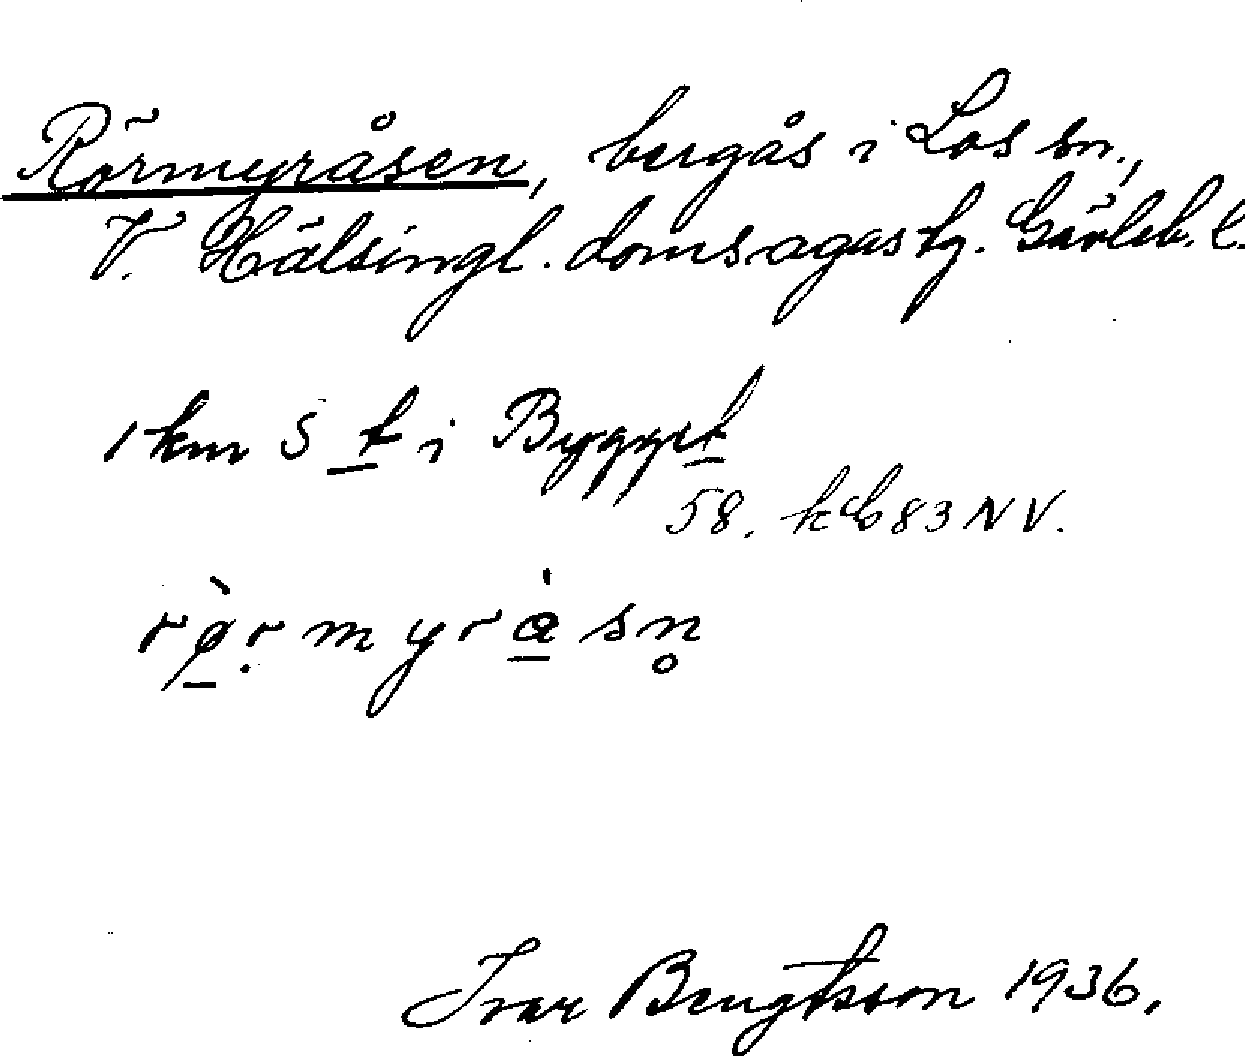 Rörmyråsen, bergås i Los sn.,
V. Hälsingl. domsagas tg. Gävleb. l.
1 km S t i Bygget
58. kb 83 NV.
rø̀r̤myråsn̥
Ivar Bengtsson 1936.